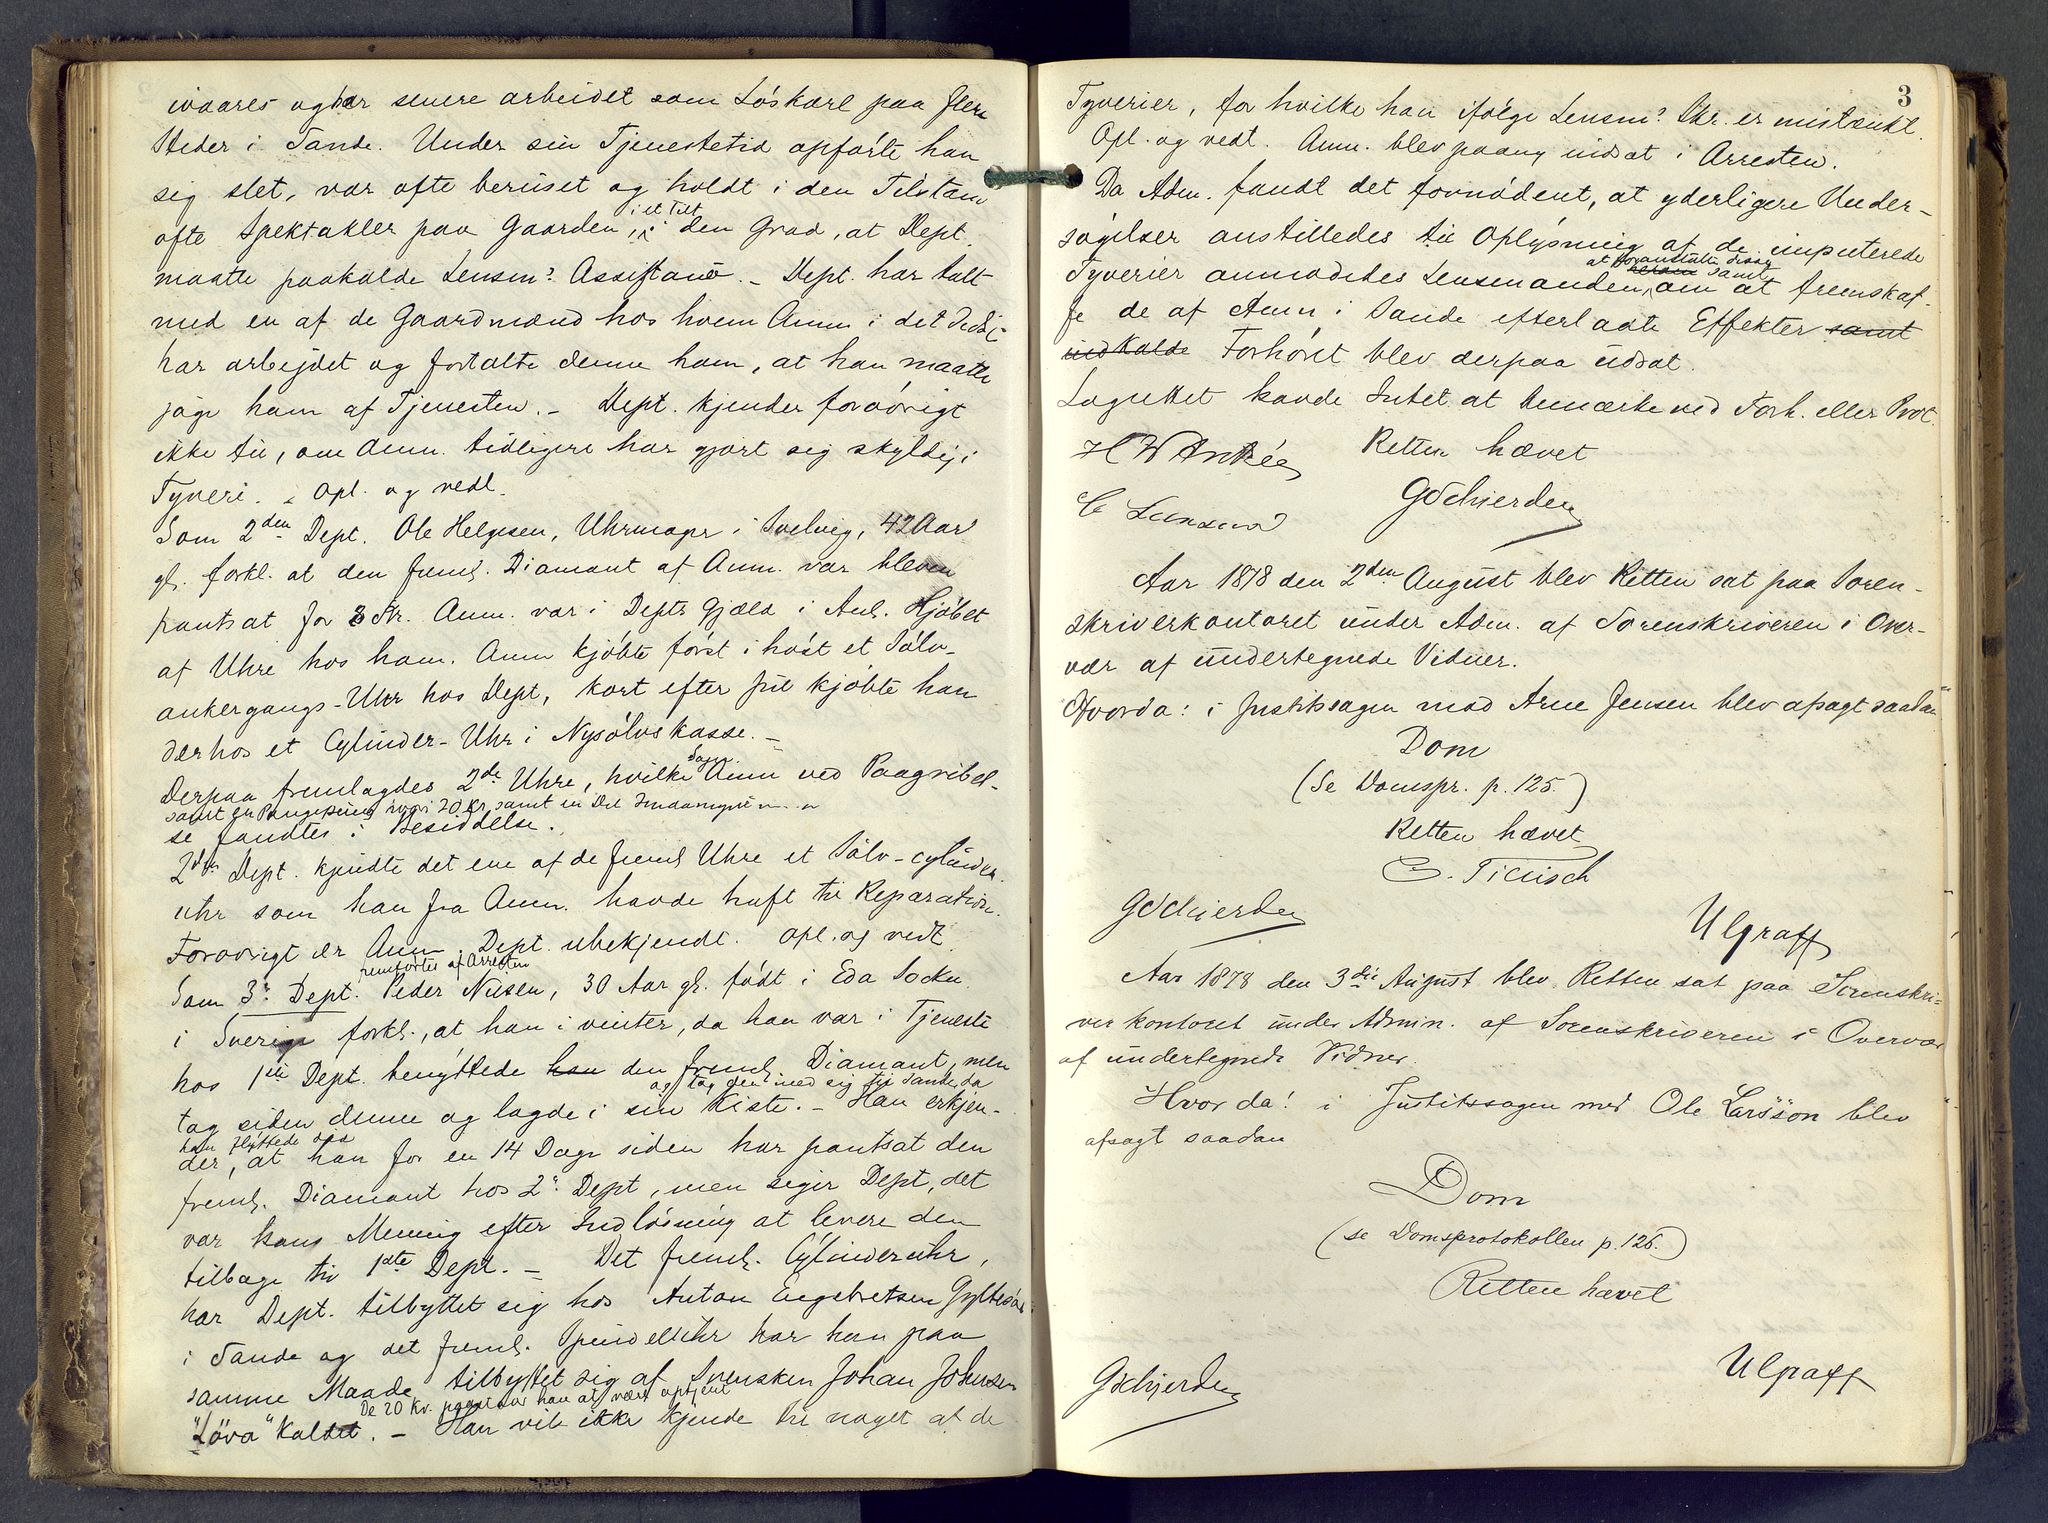 ivaares og har senere arbeidet som Løskarl paa flere
Steder i Sande. Under sin Tjenestetid opførte han
sig slet, var ofte beruset og holdt i den Tilstand
ofte Spektakler paa Gaarden, i et Tilf. i den Grad, at Dept.
maatte paakalde Lensm? Assistance. – Dept. har talt
med en af de Gaardmænd hos hvem Anm. i det Sidste
har arbejdet og fortalte denne ham, at han maatte
jage ham af Tjenesten. – Dept. kjender forøvrigt
ikke til, om Anm. tidligere har gjort sig skyldig i
Tyveri. Opl. og vedt.
Som 2den Dept. Ole Helgesen, Uhrmager i Svelvig, 42 Aar
gl. forkl. at den freml. Diamant af Anm. var bleven
pantsat for 3 Kr. Anm. var i Depts Gjæld i Anl. Kjøbet
af Uhre hos ham. Anm kjøbte først i høst et Sølv-
ankergangs-Uhr hos Dept, kort efter Jul kjøbte han
derhos et Cylinder-Uhr i Nysølvskasse. –
Derpaa fremlagdes 2de Uhre, hvilke Anm ved Paagribel-
samt en Pengepung hvori 20 Kr. samt en Del
se fandtes i Besiddelse.
2den Dept. kjendte det ene af de freml Uhre et Sølv-cylinder-
uhr som han fra Anm. havde haft til Reparation.
Forøvrigt er Anm. Dept. ubekjendt. Opl. og vedt.
fremførtes af Arresten
Som 3: Dept. Peder Nilsen, 30 Aar gl. født i Eda Sockn
i Sverige forkl., at han i vinter, da han var i Tjeneste
hos 1ste Dept. benyttede han den freml. Diamant, men
og tog den med sig til Sande da
tog siden denne og lagde i sin Kiste. – Han erkjen-
han flyttede did
der, at han for en 14 Dage siden har pantsat den
freml. Diamant hos 2: Dept, men siger Dept, det
var hans Mening efter Indløsning at levere den
tilbage til 1ste Dept. – Det freml. Cylinderuhr,
har Dept. tilbyttet sig hos Anton Engebretsen
i Sande og det freml. Spindeluhr har han paa
samme Maade tilbyttet sig af Svensken Johan Johnsen
De 20 Kr. paastaar han at være optjent
"Löva" kaldet. – Han vil ikke kjende til noget af de
3
Tyverier, for hvilke han ifølge Lensm? Skr. er mistænkt.
Opl. og vedt. Anm. blev paany indsat i Arresten.
Da Adm. fandt det fornødent, at yderligere Under-
søgelser anstilledes til Oplysning af de imputerede
at foranstalte disse
Tyverier anmodedes Lensmanden, herom samt om at fremskaf-
fe de af Anm i Sande efterladte Effekter samt
indkalde Forhøret blev derpaa udsat.
Lagrettet havde Intet at bemærke ved Forh. eller Prot.
Retten hævet
G Schjerden
Aar 1878 den 2den August blev Retten sat paa Soren-
skriverkontoret under Adm. af Sorenskriveren i Over-
vær af undertegnede Vidner.
Hvorda: i Justitssagen mod Arne Jensen blev afsagt saadan
Dom
(Se Domspr. p. 125.)
Retten hævet
G Schjerden
Ulgraff
Aar 1878 den 3die August blev Retten sat paa Sorenskri-
verkontoret under Admin. af Sorenskriveren i Overvær
af undertegnede Vidner.
Hvorda: i Justitssagen mod Ole Larsson blev
afsagt saadan
Dom
(se Domsprotokollen p. 126.)
Retten hævet
G Schjerden
Ulgraff